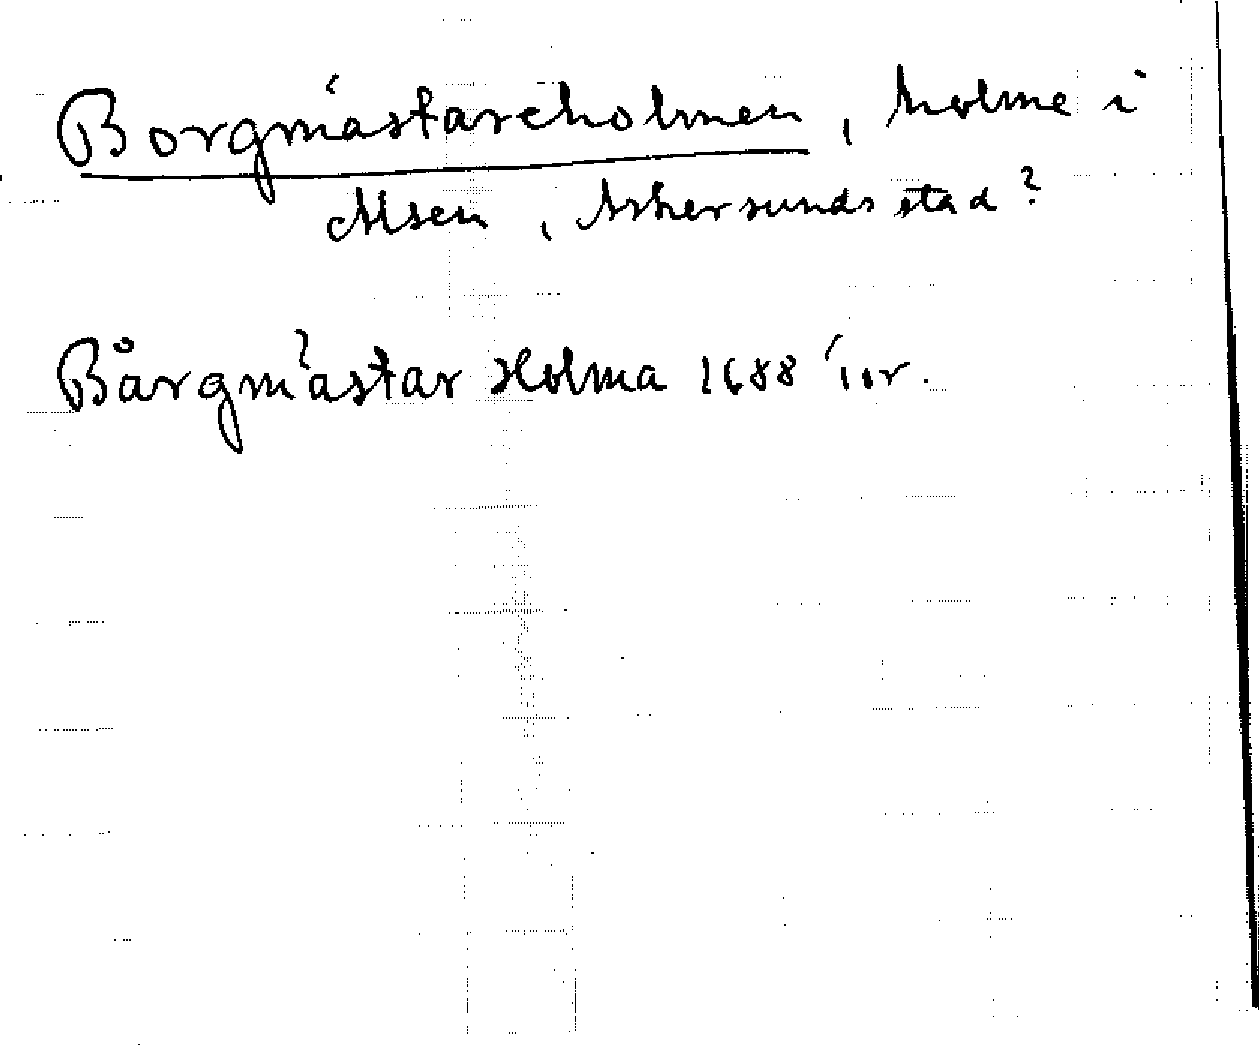 Borgmästareholmen, holme i
Alsen, Askersunds stad?
Bårgmästar Holma 1688 ior.